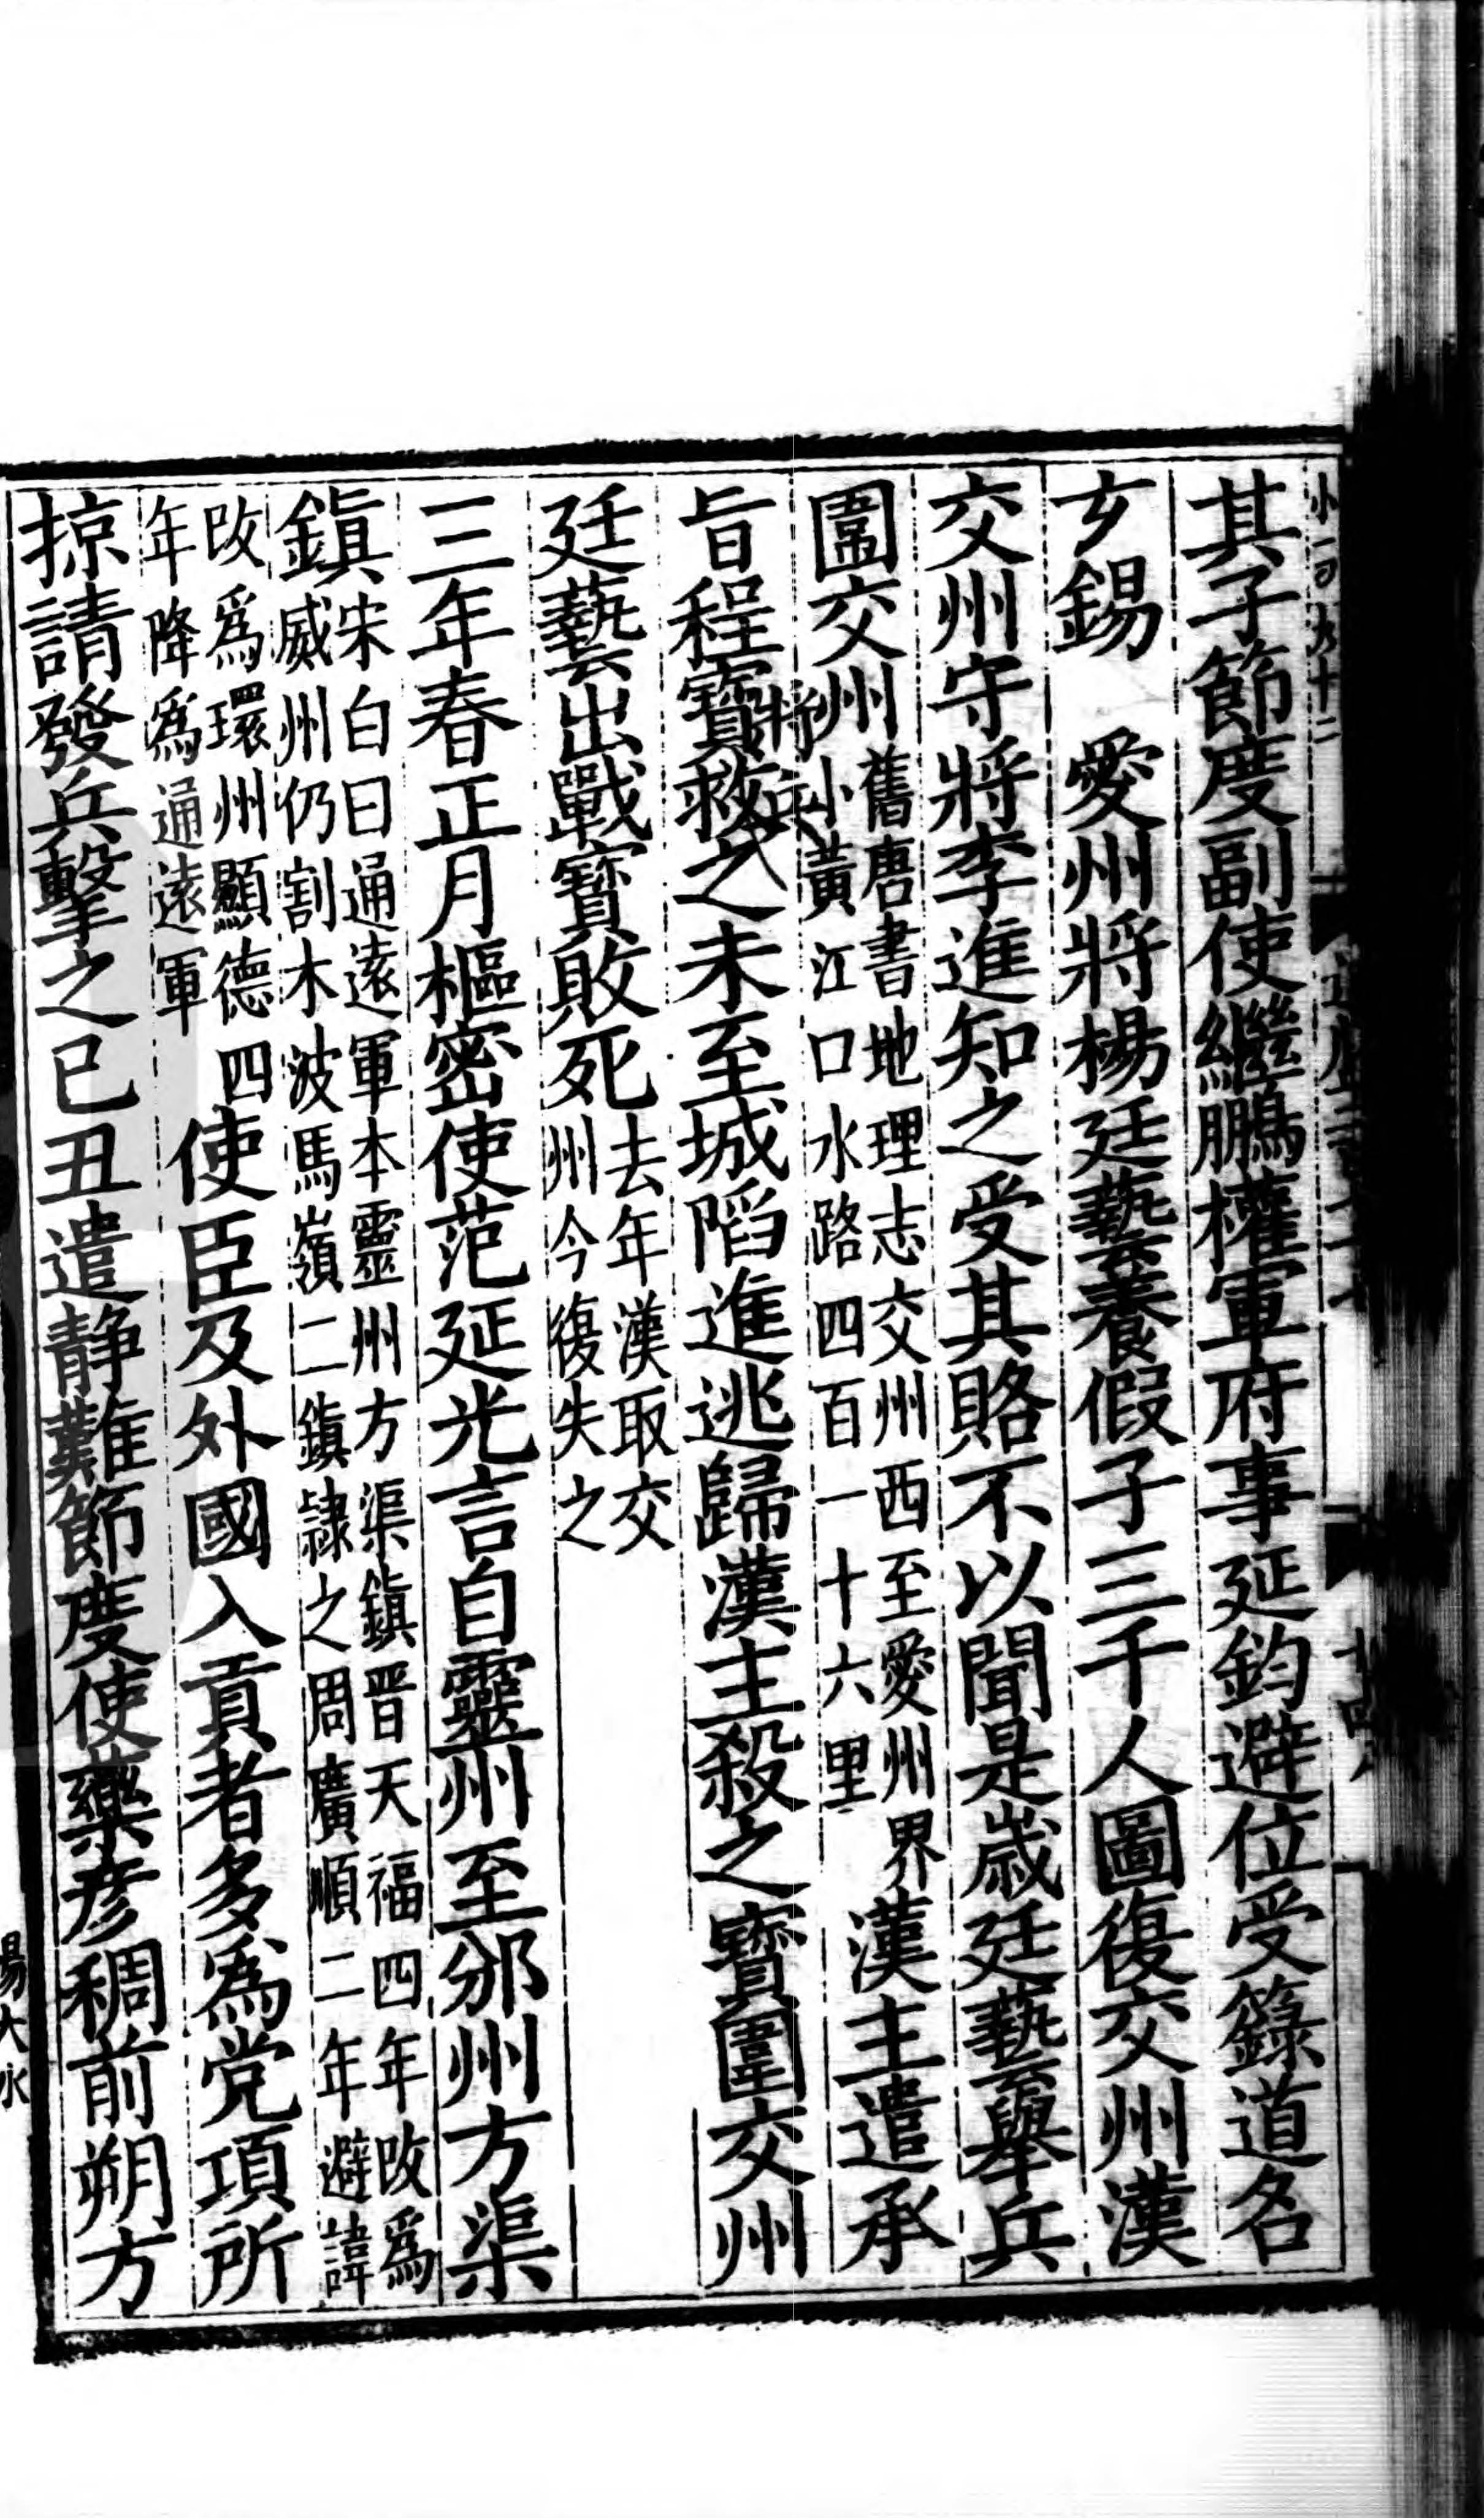 其子節度副使繼鵬權軍府事延鈞避位受籙道名
玄錫　愛州將楊廷藝養假子三千人圖復交州漢
交州守將李進知之受其賂不以聞是歲廷藝舉兵
圍交州
舊唐書地理志交州西至愛州界
小黃江口水路四百一十六里
漢主遣承
旨程寶將兵救之未至城陷進逃歸漢主殺之寶圍交州
廷藝出戰寶敗死
去年漢取交
州今復失之
三年春正月樞密使范延光言自靈州至邠州方渠
鎮
宋白曰通遠軍本靈州方渠鎮晉天福四年改爲
威州仍割木波馬嶺二鎮隷之周廣順二年避諱
改爲環州顯德四
年降爲通遠軍
使臣及外國入貢者多爲党項所
掠請發兵擊之己丑遣静難節度使藥彥稠前朔方